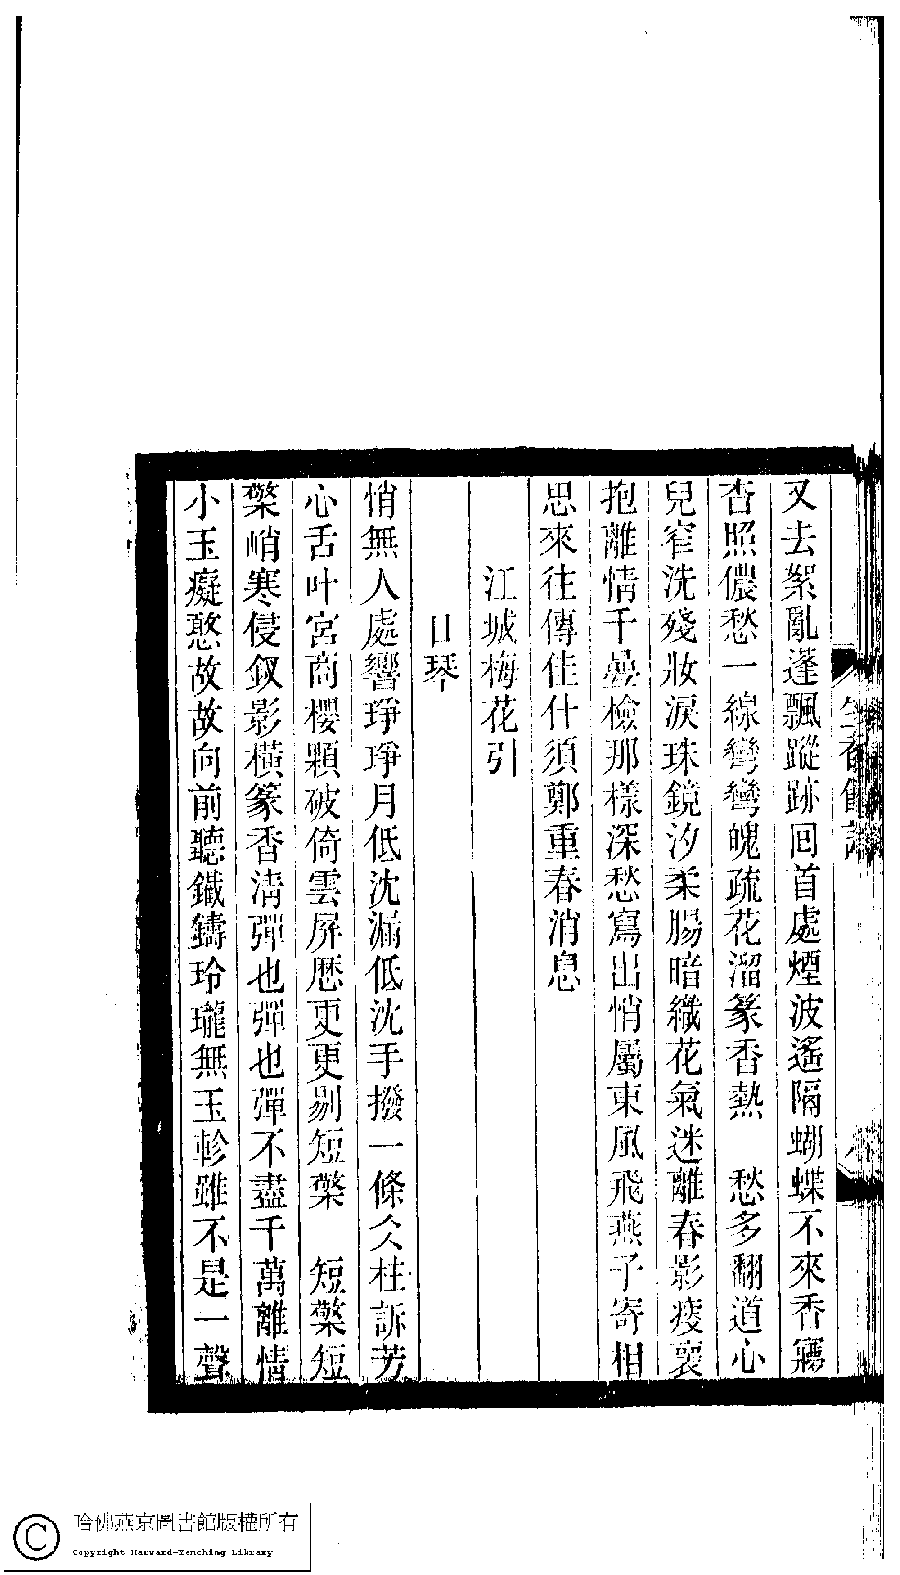 又去絮亂蓬飄蹤跡回首處煙波遙隔蝴蝶不來香寤
杏照儂愁一線彎彎魄疏花溜篆香熱　愁多翻道心
兒窄洗殘妝淚珠鏡汐柔腸暗織花氣迷離春影瘦裹
抱離情千疊檢那樣深愁寫出悄屬東風飛燕子寄相
思來往傳佳什須鄭重春消息
江城梅花引
口琴
悄無人處響琤琤月低沈漏低沈手撥一條仌柱訴芳
心舌叶宮商櫻顆破倚雲屏歷更更剔短檠　短檠短
檠峭寒侵釵影橫篆香清彈也彈也彈不盡千萬離情
小玉癡憨故故向前聽鐵鑄玲瓏無玉軫雖不是一聲
哈佛燕京圖書館版權所有
Copyright Harvard-Yenching Library